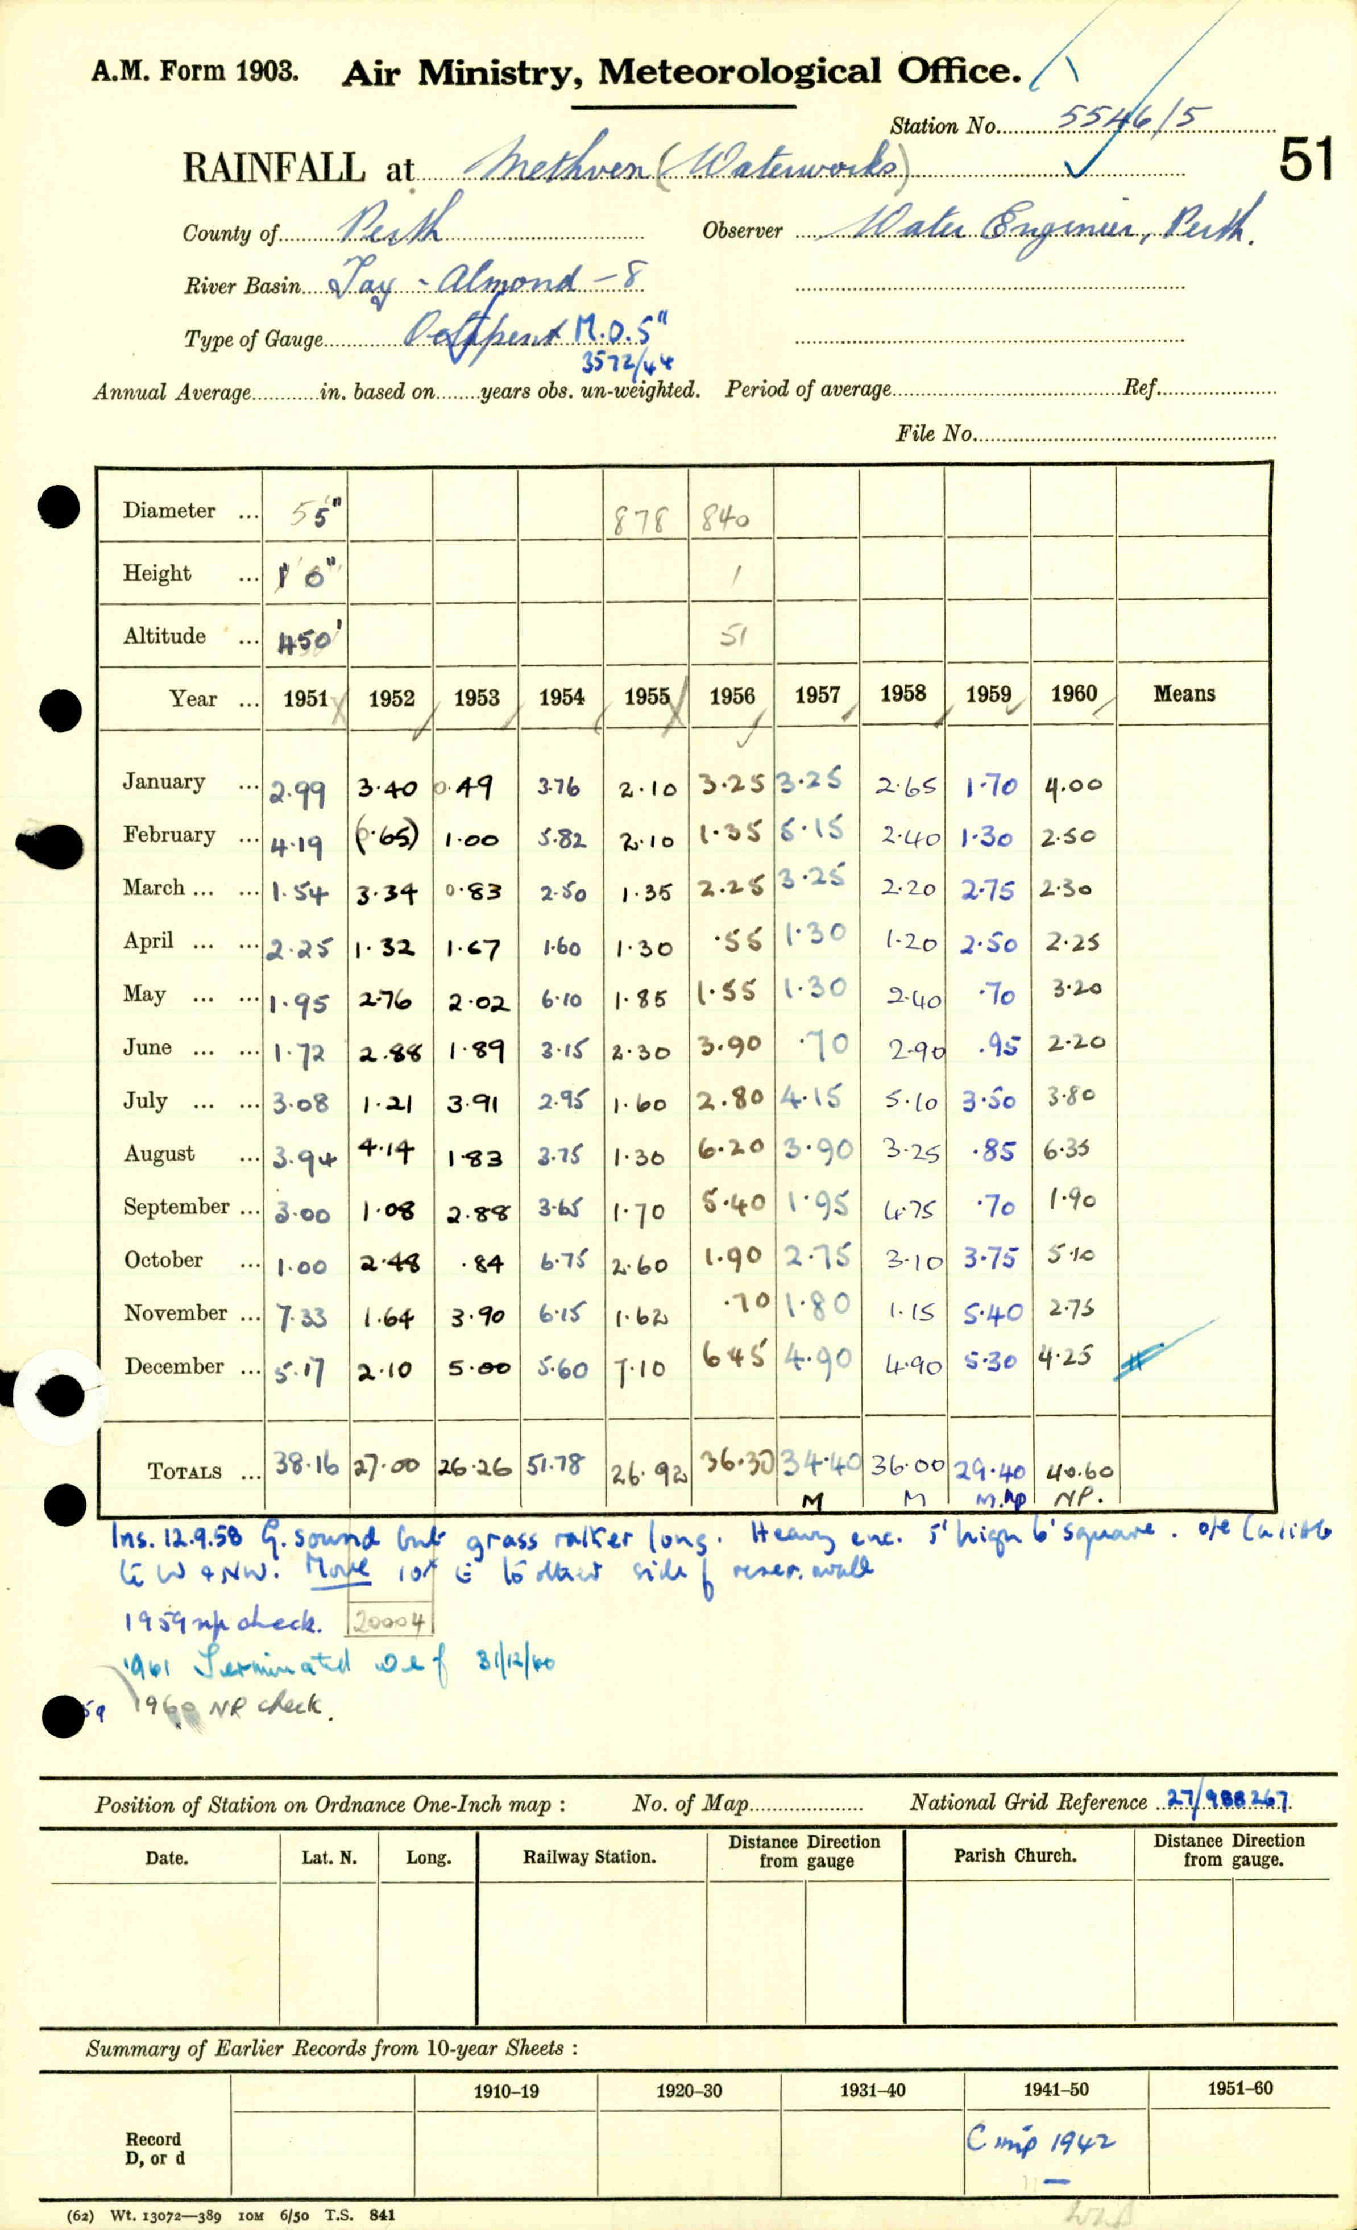 A.M. Form 1903. Air Ministry, Meteorological Office.
Station No. 5546/5
51
RAINFALL at Methven (Waterworks)
County of Perth Observer Water Engineer, Perth.
River Basin Tay - Almond - 8
Type of Gauge Octapent M.O.5"
3572/44
Annual Average in. based on years obs. un-weighted. Period of average Ref.
File No.
Diameter ... 5" 878 840
Height ... 1' 0" 1
Altitude ... 450' 51
Year ... 1951 1952 1953 1954 1955 1956 1957 1958 1959 1960 Means
January ... 2.99 3.40 0.49 3.76 2.10 3.25 3.25 2.65 1.70 4.00
February ... 4.19 (0.65) 1.00 5.82 2.10 1.35 5.15 2.40 1.30 2.50
March ... ... 1.54 3.34 0.83 2.50 1.35 2.25 3.25 2.20 2.75 2.30
April ... ... 2.25 1.32 1.67 1.60 1.30 .55 1.30 1.20 2.50 2.25
May ... ... 1.95 2.76 2.02 6.10 1.85 1.55 1.30 2.40 .70 3.20
June ... ... 1.72 2.88 1.89 3.15 2.30 3.90 .70 2.90 .95 2.20
July ... ... 3.08 1.21 3.91 2.95 1.60 2.80 4.15 5.10 3.50 3.80
August ... 3.94 4.14 1.83 3.75 1.30 6.20 3.90 3.25 .85 6.35
September ... 3.00 1.08 2.88 3.65 1.70 5.40 1.95 4.75 .70 1.90
October ... 1.00 2.48 .84 6.75 2.60 1.90 2.75 3.10 3.75 5.10
November ... 7.33 1.64 3.90 6.15 1.62 .70 1.80 1.15 5.40 2.75
December ... 5.17 2.10 5.00 5.60 7.10 6.45 4.90 4.90 5.30 4.25
TOTALS ... 38.16 27.00 26.26 51.78 26.92 36.30 34.40 36.00 29.40 40.60
M M M.NP NP.
Ins. 12.9.58 G. sound but grass rather long. Heavy enc. 5' high 6' square. o/e
to W & NW. Move 10x E to other side of reser. wall
1959 np check. 20004
1961 Terminated wef 31/12/60
59 1960 NP check.
Position of Station on Ordnance One-Inch map : No. of Map National Grid Reference 27/988267
Date. Lat. N. Long. Railway Station. Distance from Direction gauge Parish Church. Distance from Direction gauge.
Summary of Earlier Records from 10-year Sheets :
1910–19 1920–30 1931–40 1941–50 1951–60
Record
D, or d
C inp 1942
(62) Wt. 13072—389 10M 6/50 T.S. 841